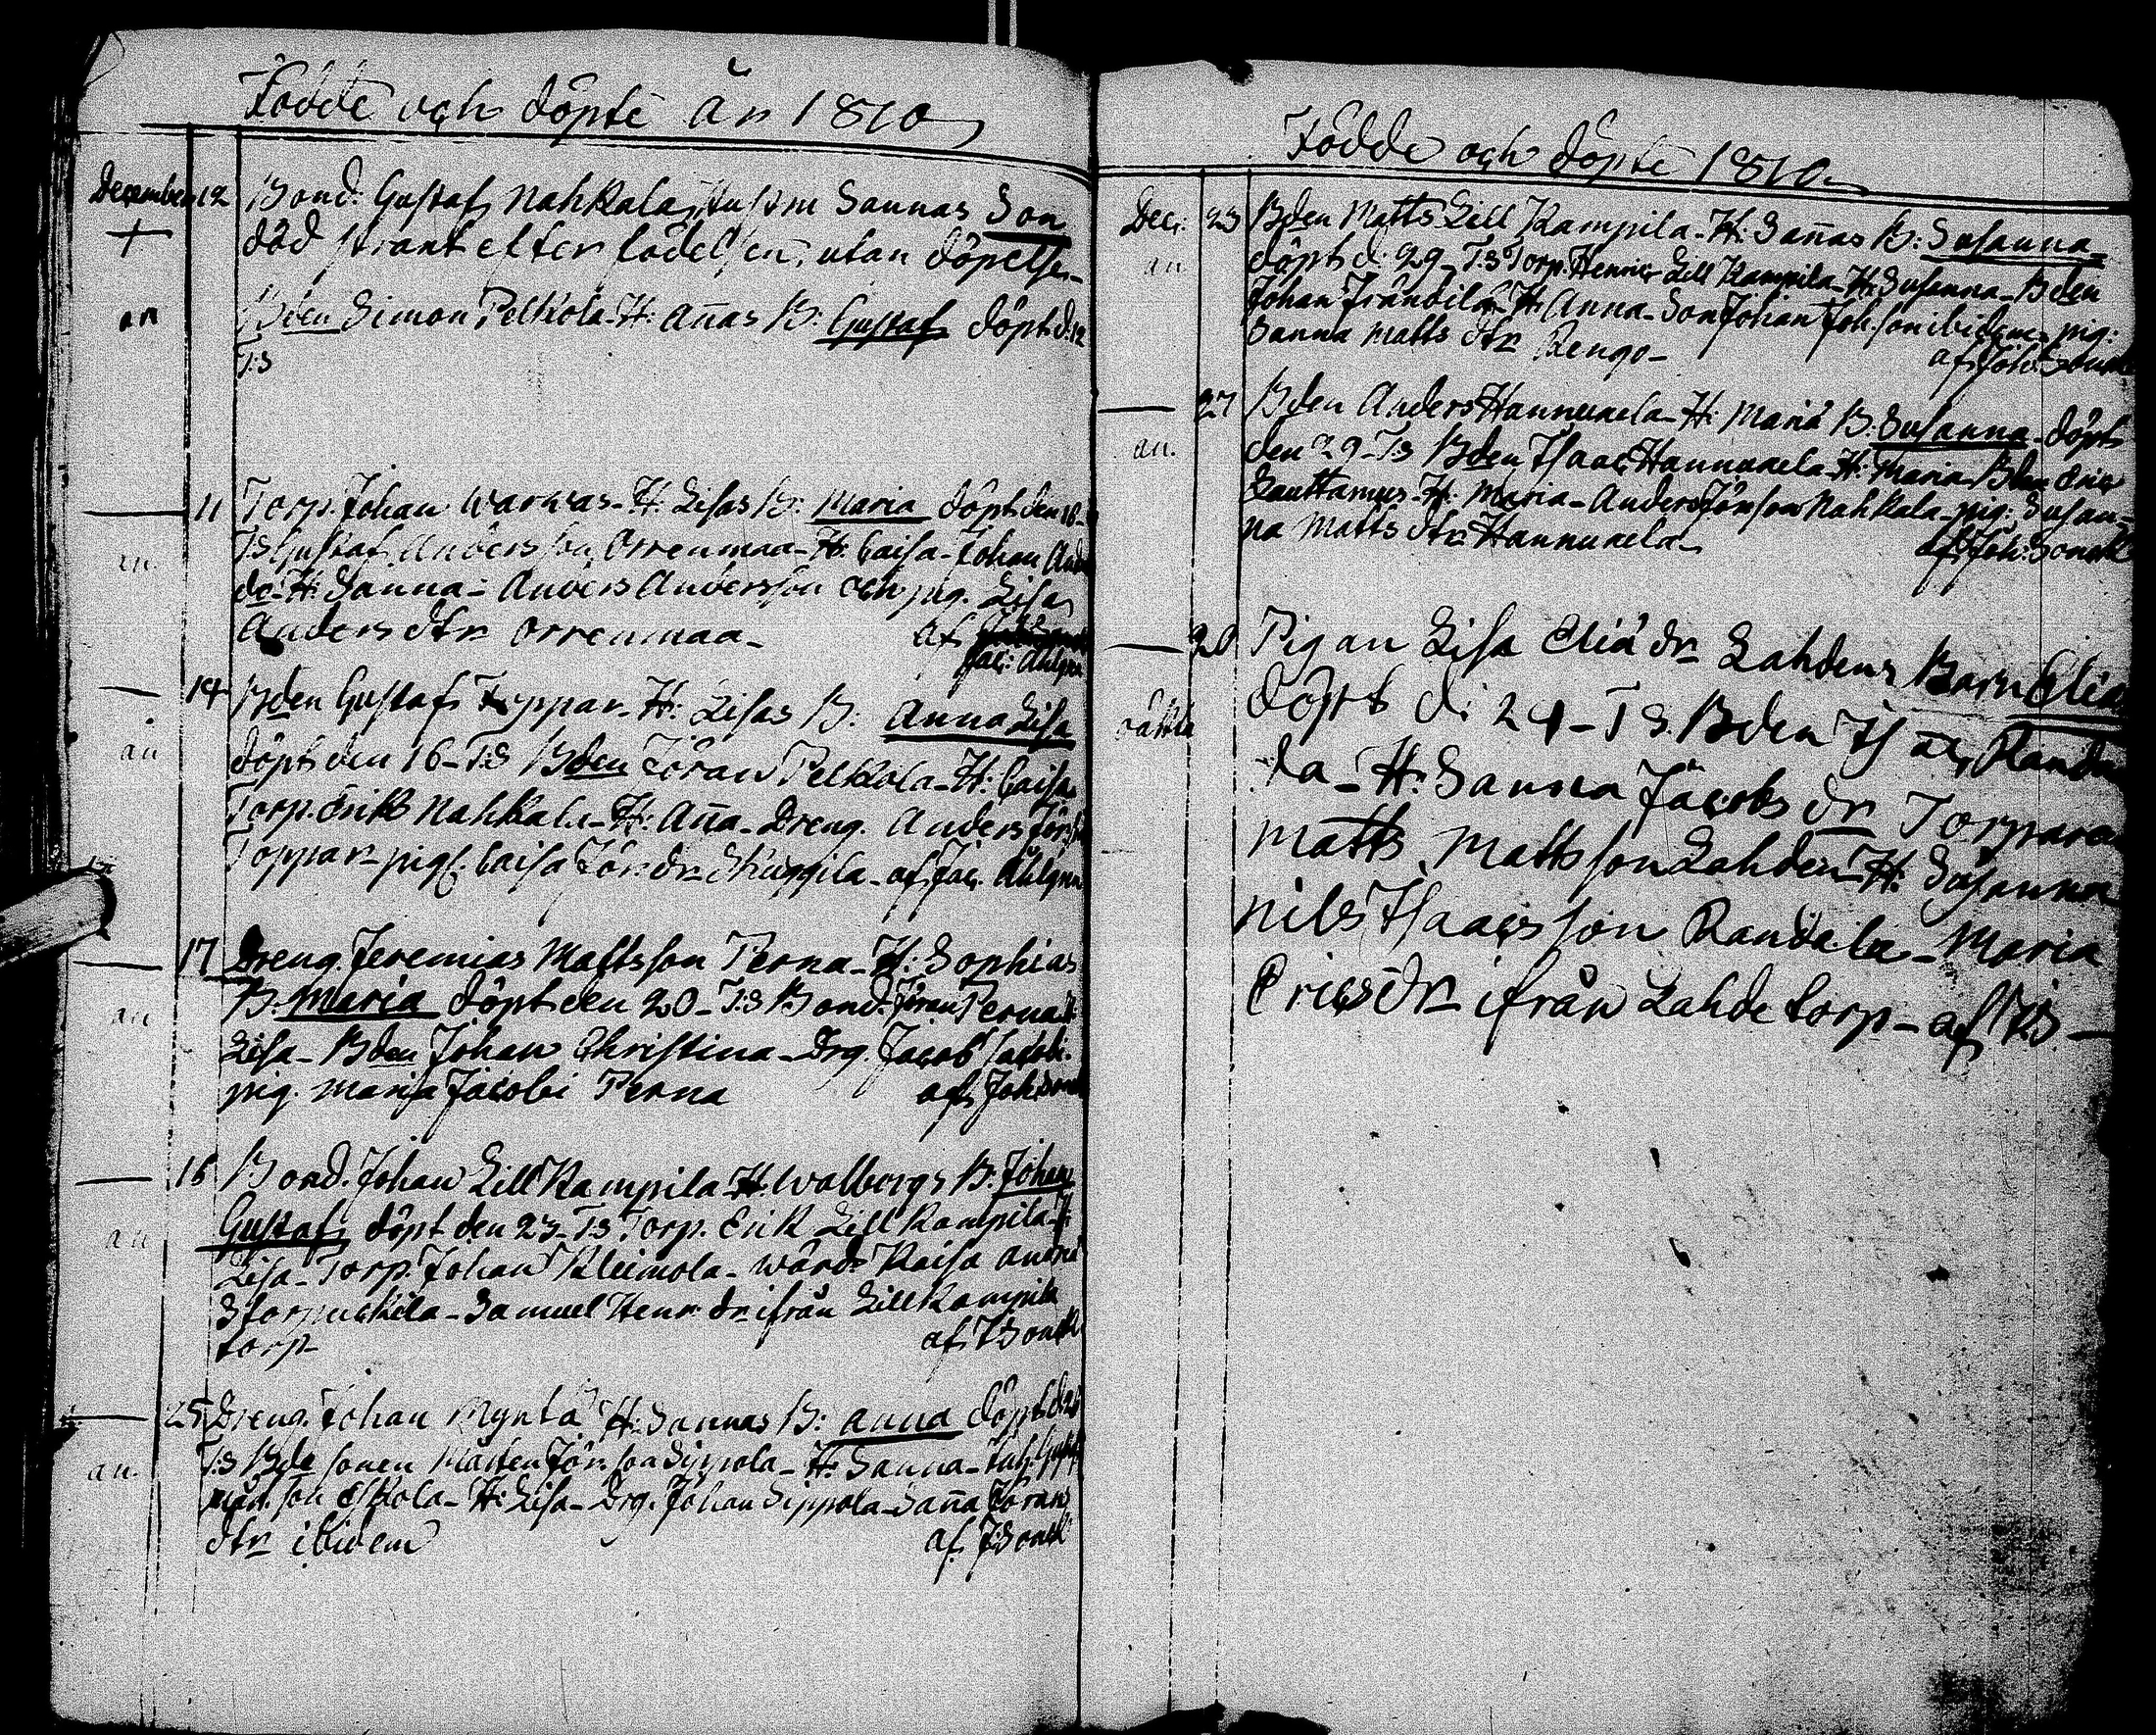 Födde och döpte År 1810
December 12 Bond. Gustaf Nahkala Hustru Sannas Son
+ död strant efter födelsen, utan döpelse
an Bden Simon Pelkola H: Añas B: Gustaf döpt d. 12
T:s
11 Torp. Johan Warwas H: Lisas B: Maria döpt den 16
an. T:s Gustaf Andersson Orrenmaa H: Caisa Johan
do H: Sanna Anders Andersson och pig. Lisa
Anders dtr Orrenmaa af
Jac: Ahlgren
14 Bden Gustaf Toppar H: Lisas B: Anna Lisa
an döpt den 16 T:s Bden Jöran Pelkola H: Caisa
Torp. Erik Nahkala H: Aña Dreng. Anders
Toppar pig. Caisa Jör: dr af Jac. Ahlgren
17 Dreng. Jeremias Mattsson Perna H: Sophias
an B: Maria döpt den 20 T:s Bond. Jöran Perna
Lisa Bden Johan Christina Drg. Jacob Jacobi
pig. Maria Jacobi Perna af Joh
16 Bond. Johan Lill Kampila H: Walborgs B: Johan
an Gustaf döpt den 23 T:s Torp. Erik Lill Kampila
Lisa Torp. Johan Kleimola Kaisa
Samuel Henr. dr ifrån Lill Kampila
torp af J Bonell
25 Dreng. Johan Myntä H: Sannas B: Anna döpt
an. T:s Bde sonen Mårten Jör. son Sippola H: Sanna
son Eskola H: Lisa Drg. Johan Sippola Saña Jörans
dtr ibidem af J Bonell
Födde och döpte 1810
Dec: 23 Bden Matts Lill Kampila H: Sañas B: Susanna
an döpt d. 29 T:s Torp. Henric Lill Kampila H: Susanna Bden
Johan H: Anna Son Johan Joh. son ibidem pig:
Sanna Matts dtr Rengo af Joh:
27 Bden Anders Hannukela H: Maria B: Susanna döpt
an. den 29 T:s Bden Isaac Hannukela H: Maria Bden Eric
Lauttamus H: Maria Anders Jönsson Nahkala pig: Susan
na Matts dtr Hannukela af Joh: Bonell
20 Pigan Lisa Eliä dr Lahdens Barn Elia
döpt d: 24 T:s. Bden Isac Randa
la H: Sanna Jacobs dr Torpare
Matts Mattsson Lahden H: Susanna
Nils Isaacsson Randala Maria
Ericsdr ifrån Lahde torp af J B